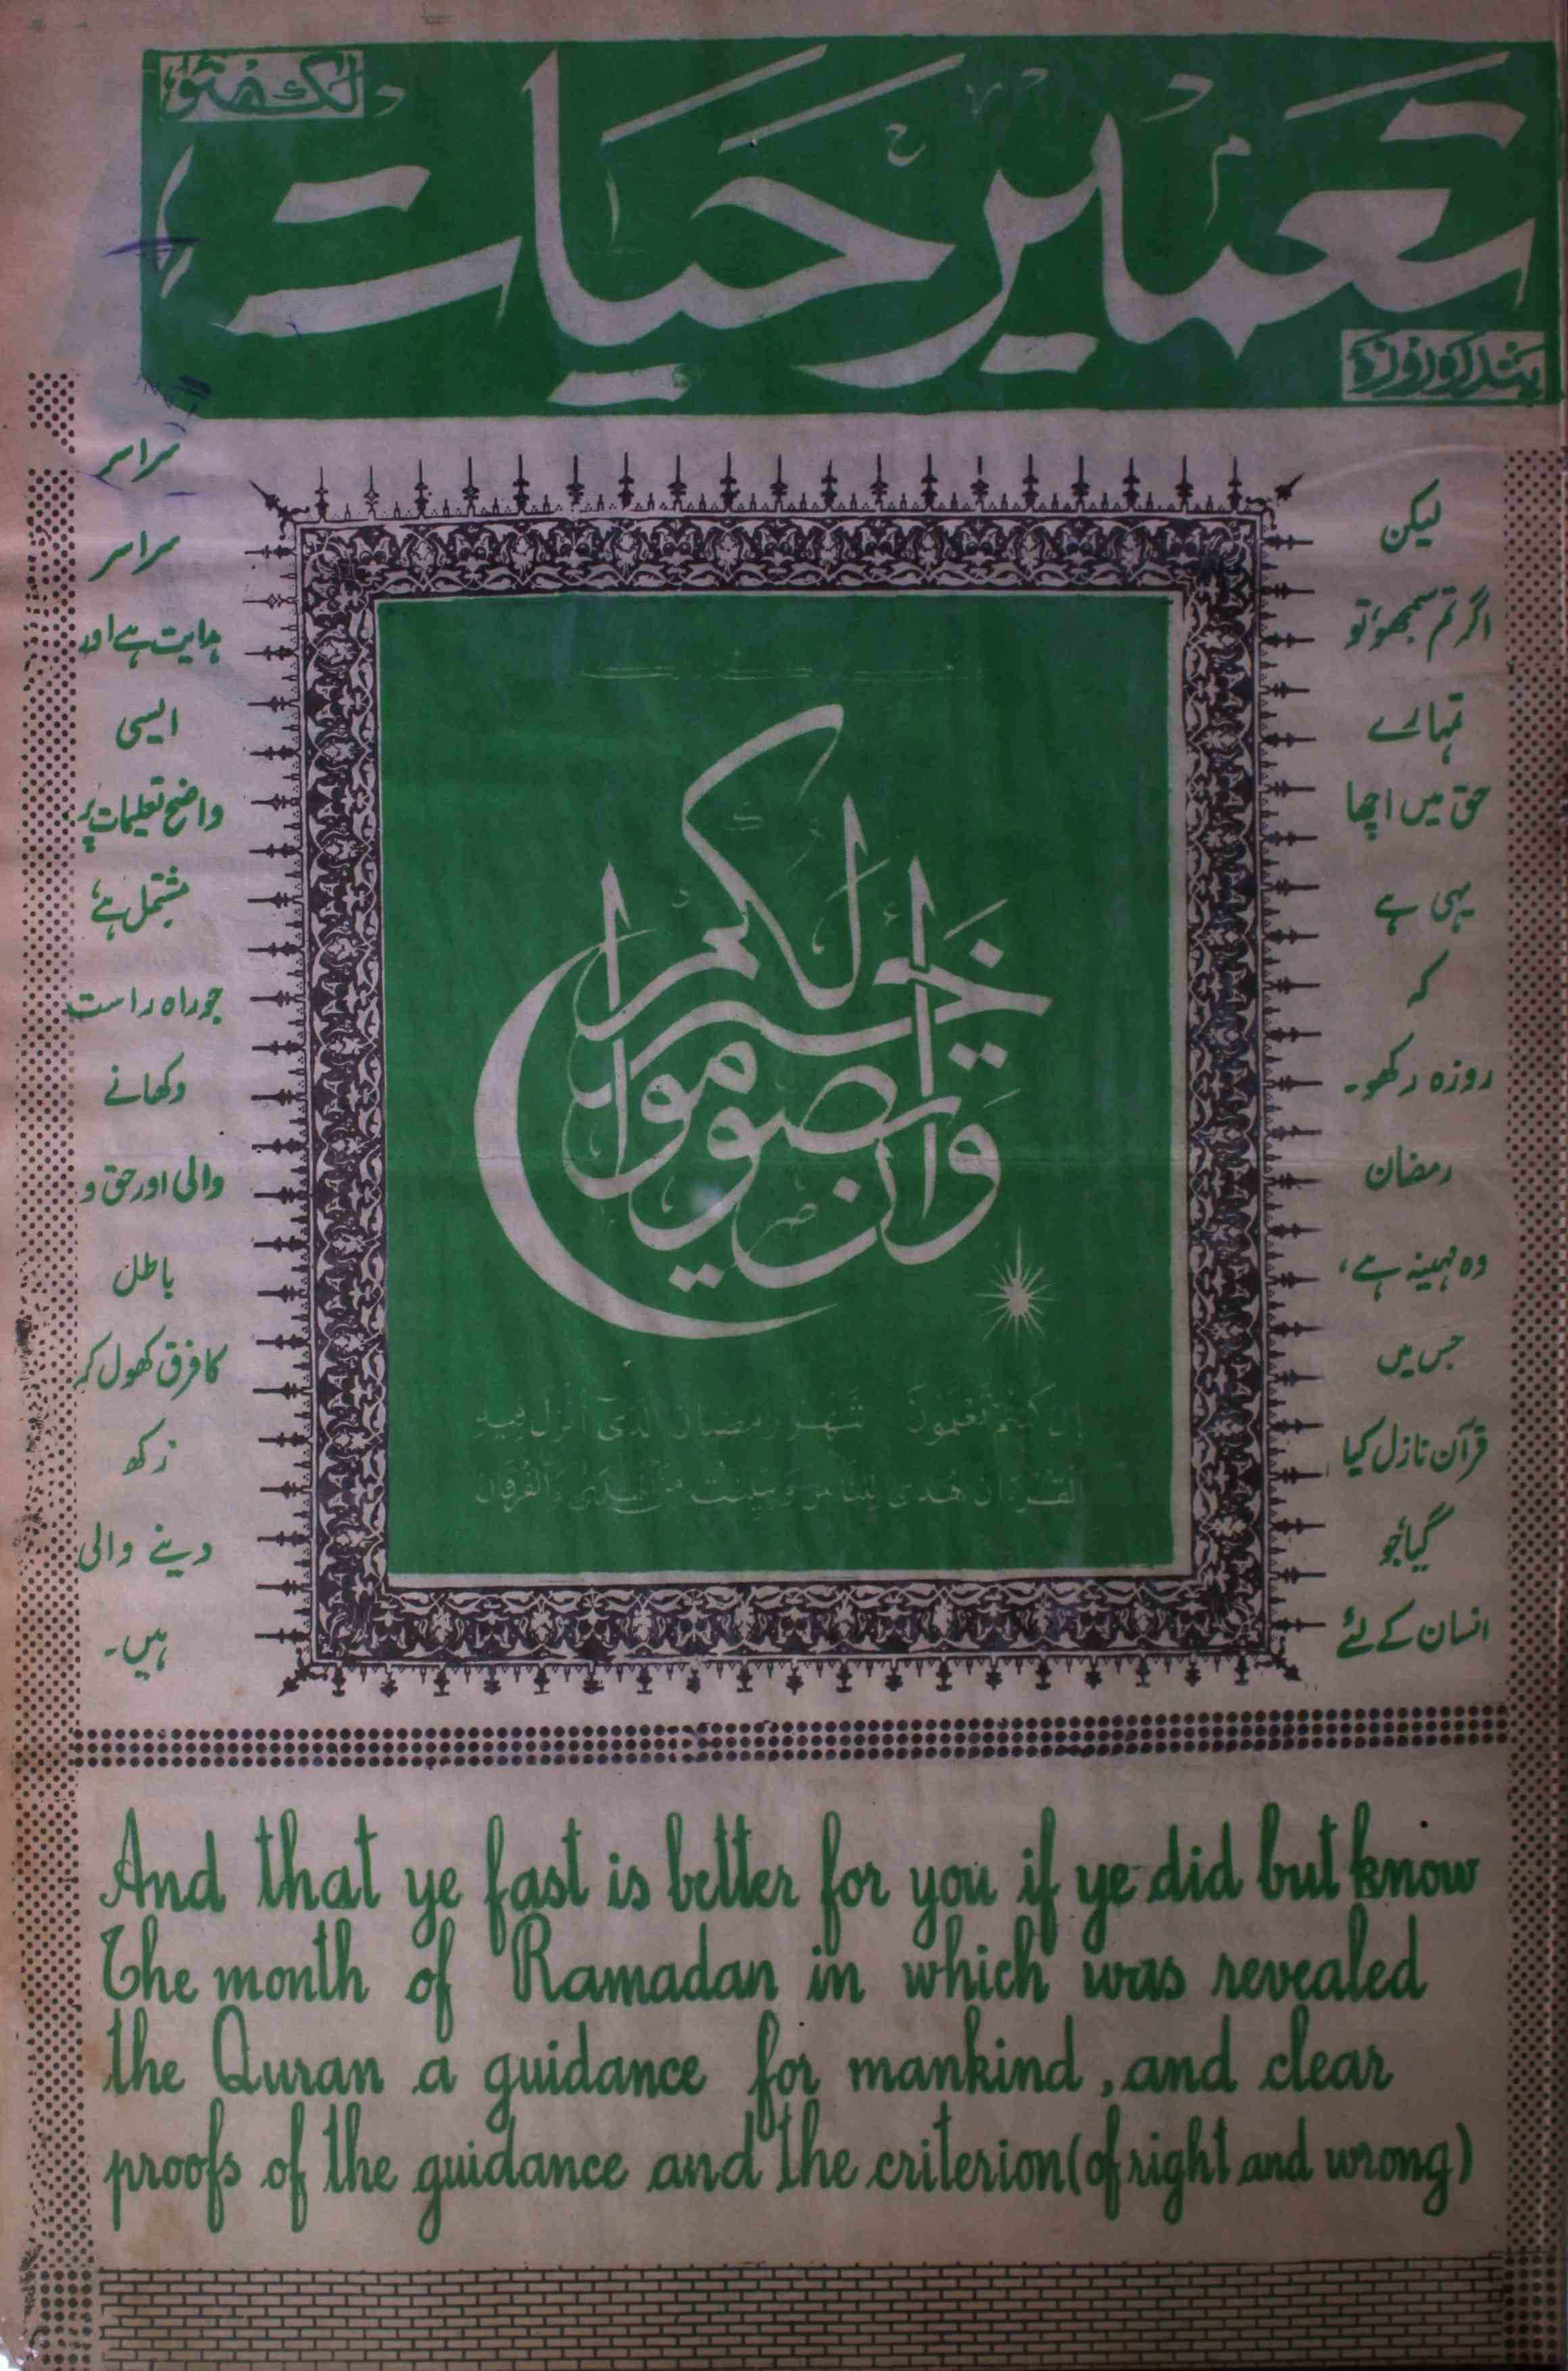 لکھنؤ
تعمیر حیات
پندرہ روزہ
لیکن
اگر تم سمجھو، تو
تمہارے
حق میں اچھا
یہی ہے
کہ
روزہ رکھو۔
رمضان
وہ مہینہ ہے،
جس میں
قرآن نازل کیا
گیا، جو
انسان کے لئے
سراسر
سراسر
ہدایت ہے اور
ایسی
واضح تعلیمات پر
مشتمل ہے،
جو راہ راست
دکھانے
والی اور حق و
باطل
کا فرق کھول کر
رکھ
دینے والی
ہیں۔
وان تصوموا خير لكم
ان كنتم تعلمون شهر رمضان الذي انزل فيه
القرءان هدى للناس وبينت من الهدى والفرقان
And that ye fast is better for you if ye did but know
The month of Ramadan in which was revealed
the Quran a guidance for mankind, and clear
proofs of the guidance and the criterion (of right and wrong)